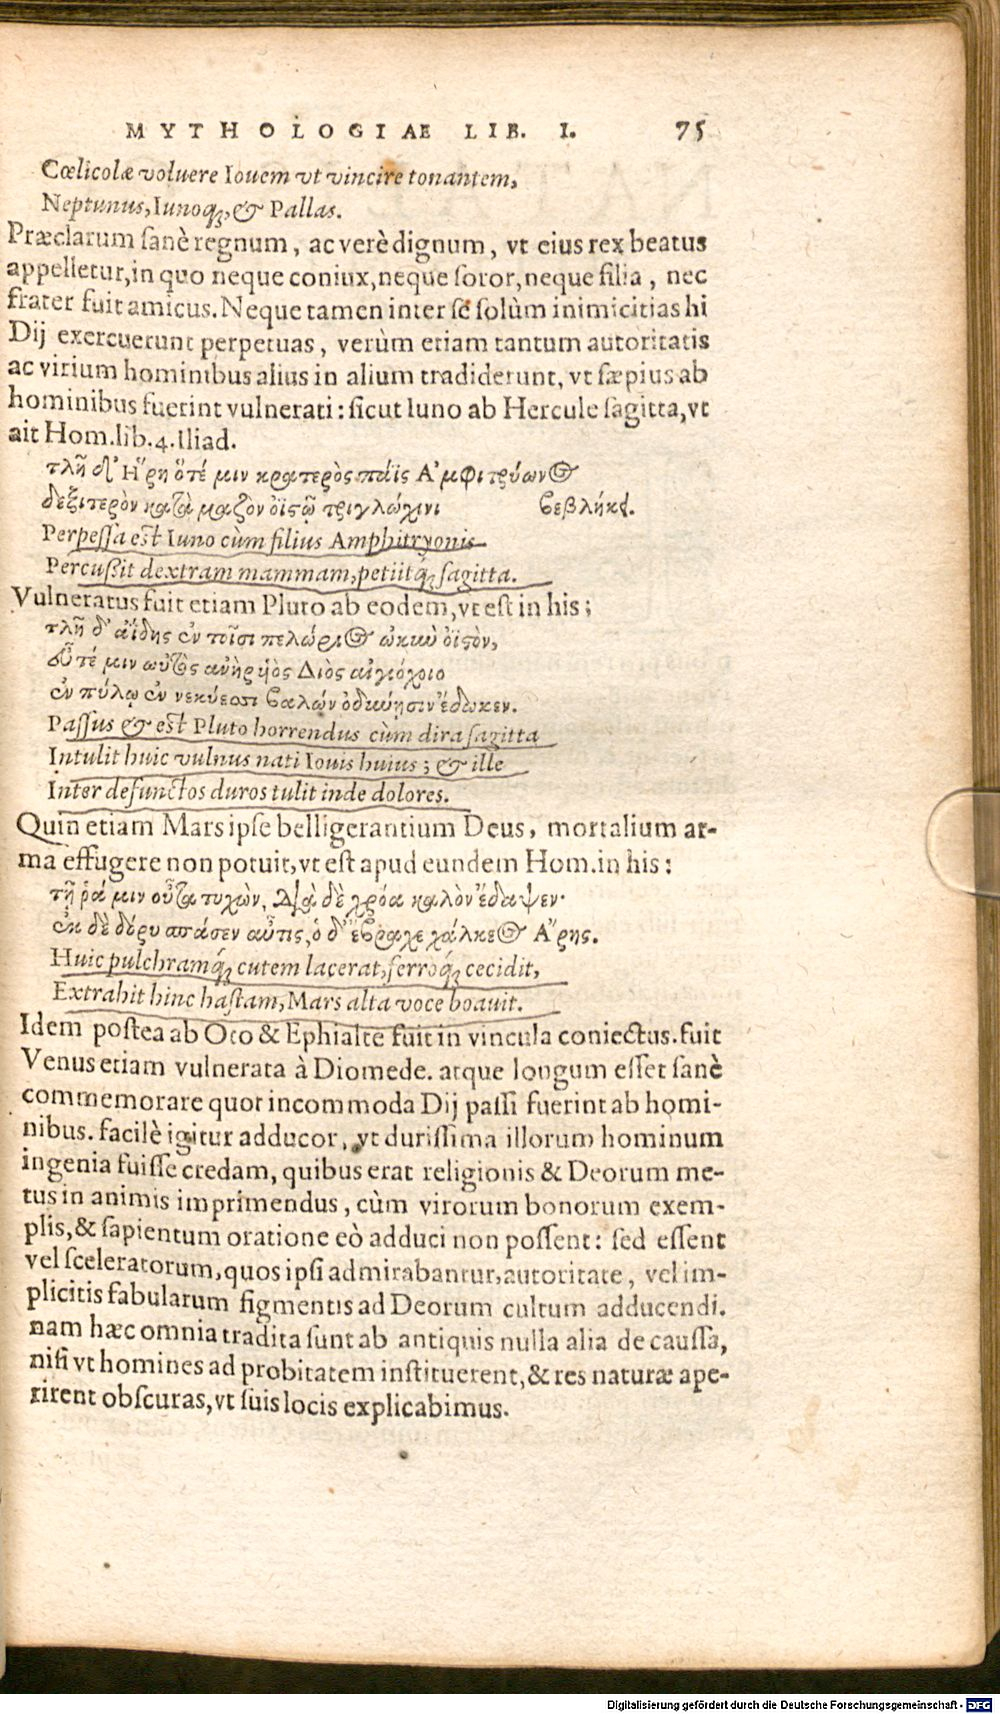 MYTHOLOGIAE LIB. I. 75
Cœlicolæ voluere Iouem vt vincire tonantem,
Neptunus, Iunoq́;, & Pallas.
Præclarum sanè regnum, ac verè dignum, vt eius rex beatus
appelletur, in quo neque coniux, neque soror, neque filia, nec
frater fuit amicus. Neque tamen inter se solùm inimicitias hi
Dij exercuerunt perpetuas, verùm etiam tantum autoritatis
ac virium hominibus alius in alium tradiderunt, vt sæpius ab
hominibus fuerint vulnerati: sicut Iuno ab Hercule sagitta, vt
ait Hom. lib. 4. Iliad.
τλῆ δ' Ἥρη ὅτέ μιν κρατερὸς πάϊς Ἀμφιτρύωνος
δεξιτερὸν κατὰ μαζὸν ὀϊστῷ τριγλώχινι βεβλήκει.
Perpessa est Iuno cùm filius Amphitryonis
Percussit dextram mammam, petiitq́; sagitta.
Vulneratus fuit etiam Pluto ab eodem, vt est in his;
τλῆ δ' ἀΐδης ἐν τοῖσι πελώριος ὠκὺν ὀϊστὸν,
εὖτέ μιν ωὐτὸς ἀνὴρ υἱὸς Διὸς αἰγιόχοιο
ἐν πύλῳ ἐν νεκύεσσι βαλὼν ὀδύνῃσιν ἔδωκεν.
Passus & est Pluto horrendus cùm dira sagitta
Intulit huic vulnus nati Iouis huius; & ille
Inter defunctos duros tulit inde dolores.
Quin etiam Mars ipse belligerantium Deus, mortalium ar-
ma effugere non potuit, vt est apud eundem Hom. in his:
τῇ ῥά μιν οὖτα τυχὼν, διὰ δὲ χρόα καλὸν ἔδαψεν·
ἐκ δὲ δόρυ σπάσεν αὖτις, ὁ δ' ἔβραχε χάλκεος Ἄρης.
Huic pulchramq́; cutem lacerat, ferroq́; cecidit,
Extrahit hinc hastam, Mars alta voce boauit.
Idem postea ab Oto & Ephialte fuit in vincula coniectus. fuit
Venus etiam vulnerata à Diomede. atque longum esset sanè
commemorare quot incommoda Dij passi fuerint ab homi-
nibus. facilè igitur adducor, vt durissima illorum hominum
ingenia fuisse credam, quibus erat religionis & Deorum me-
tus in animis imprimendus, cùm virorum bonorum exem-
plis, & sapientum oratione eò adduci non possent: sed essent
vel sceleratorum, quos ipsi admirabantur, autoritate, vel im-
plicitis fabularum figmentis ad Deorum cultum adducendi.
nam hæc omnia tradita sunt ab antiquis nulla alia de caussa,
nisi vt homines ad probitatem instituerent, & res naturæ ape-
rirent obscuras, vt suis locis explicabimus.
Digitalisierung gefördert durch die Deutsche Forschungsgemeinschaft - DFG